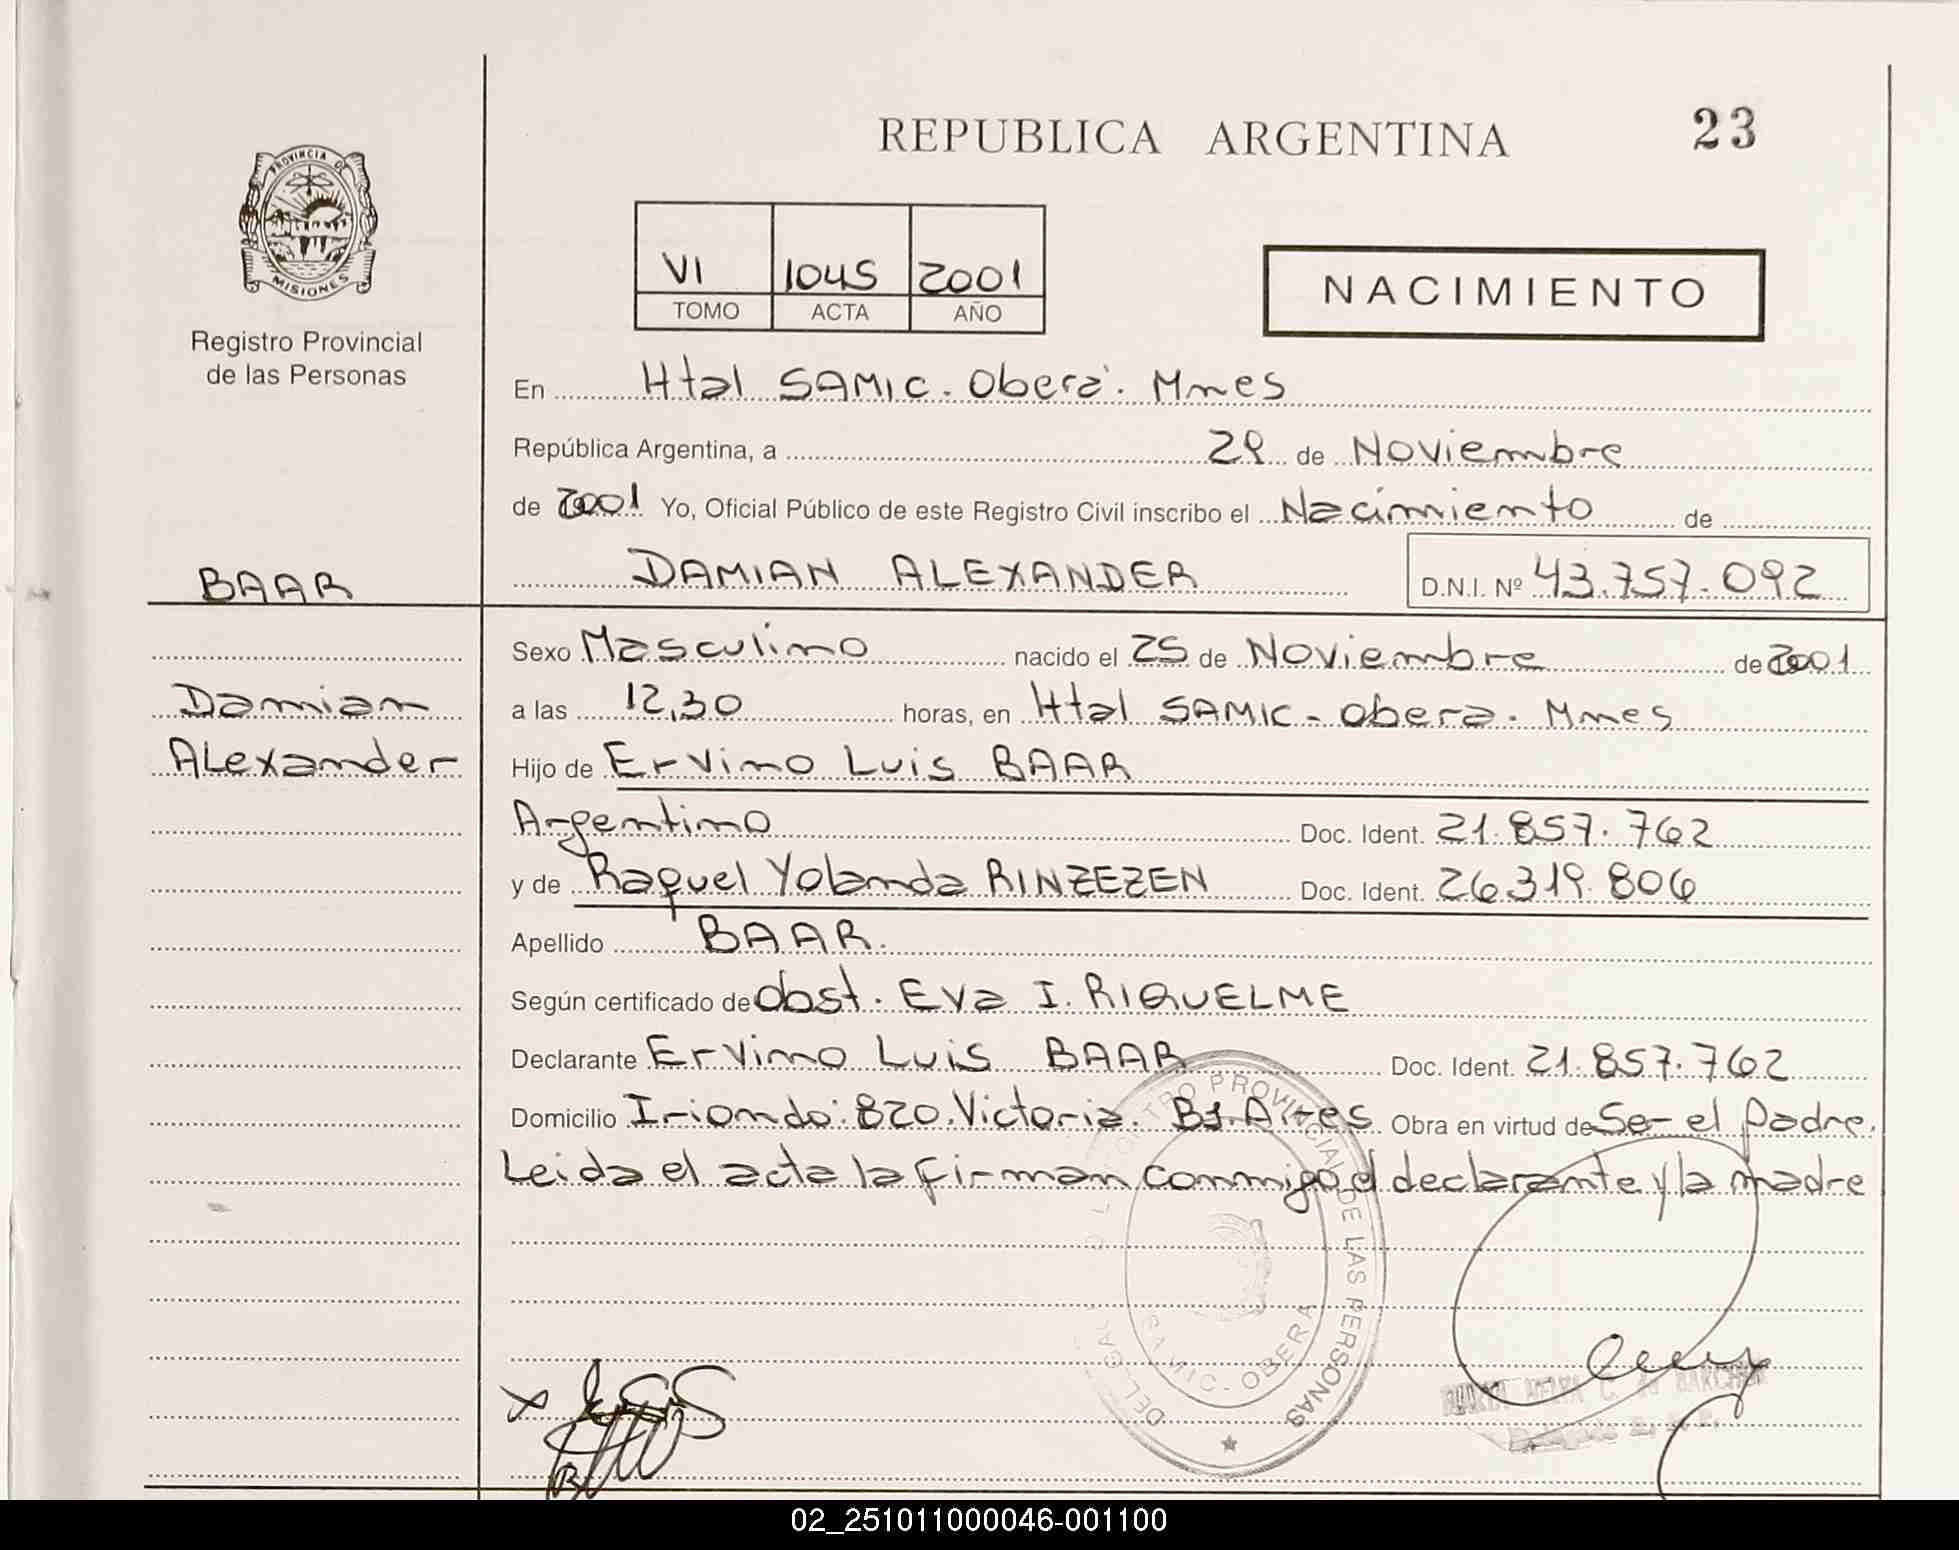 REPUBLICA ARGENTINA
23
PROVINCIA DE
MISIONES
Registro Provincial
de las Personas
VI 1045 2001
TOMO ACTA AÑO
NACIMIENTO
En Htal SAMIC. Oberá. Mnes
República Argentina, a 29 de Noviembre
de 2001 Yo, Oficial Público de este Registro Civil inscribo el Nacimiento de
BAAR
DAMIAN ALEXANDER D.N.I. Nº 43.757.092
Damian
Alexander
Sexo Masculino nacido el 25 de Noviembre de 2001
a las 12,30 horas, en Htal SAMIC - Obera. Mnes
Hijo de Ervino Luis BAAR
Argentino Doc. Ident. 21.857.762
y de Raquel Yolanda RINZEZEN Doc. Ident. 26.319.806
Apellido BAAR.
Según certificado de obst. Eva I. RIQUELME
Declarante Ervino Luis BAAR Doc. Ident. 21.857.762
Domicilio Iriondo: 820. Victoria. Bs.Aires Obra en virtud de Ser el Padre.
Leida el acta la firman conmigo el declarante y la madre
PROVINCIAL DE LAS PERSONAS
SAMIC - OBERA
02_251011000046-001100